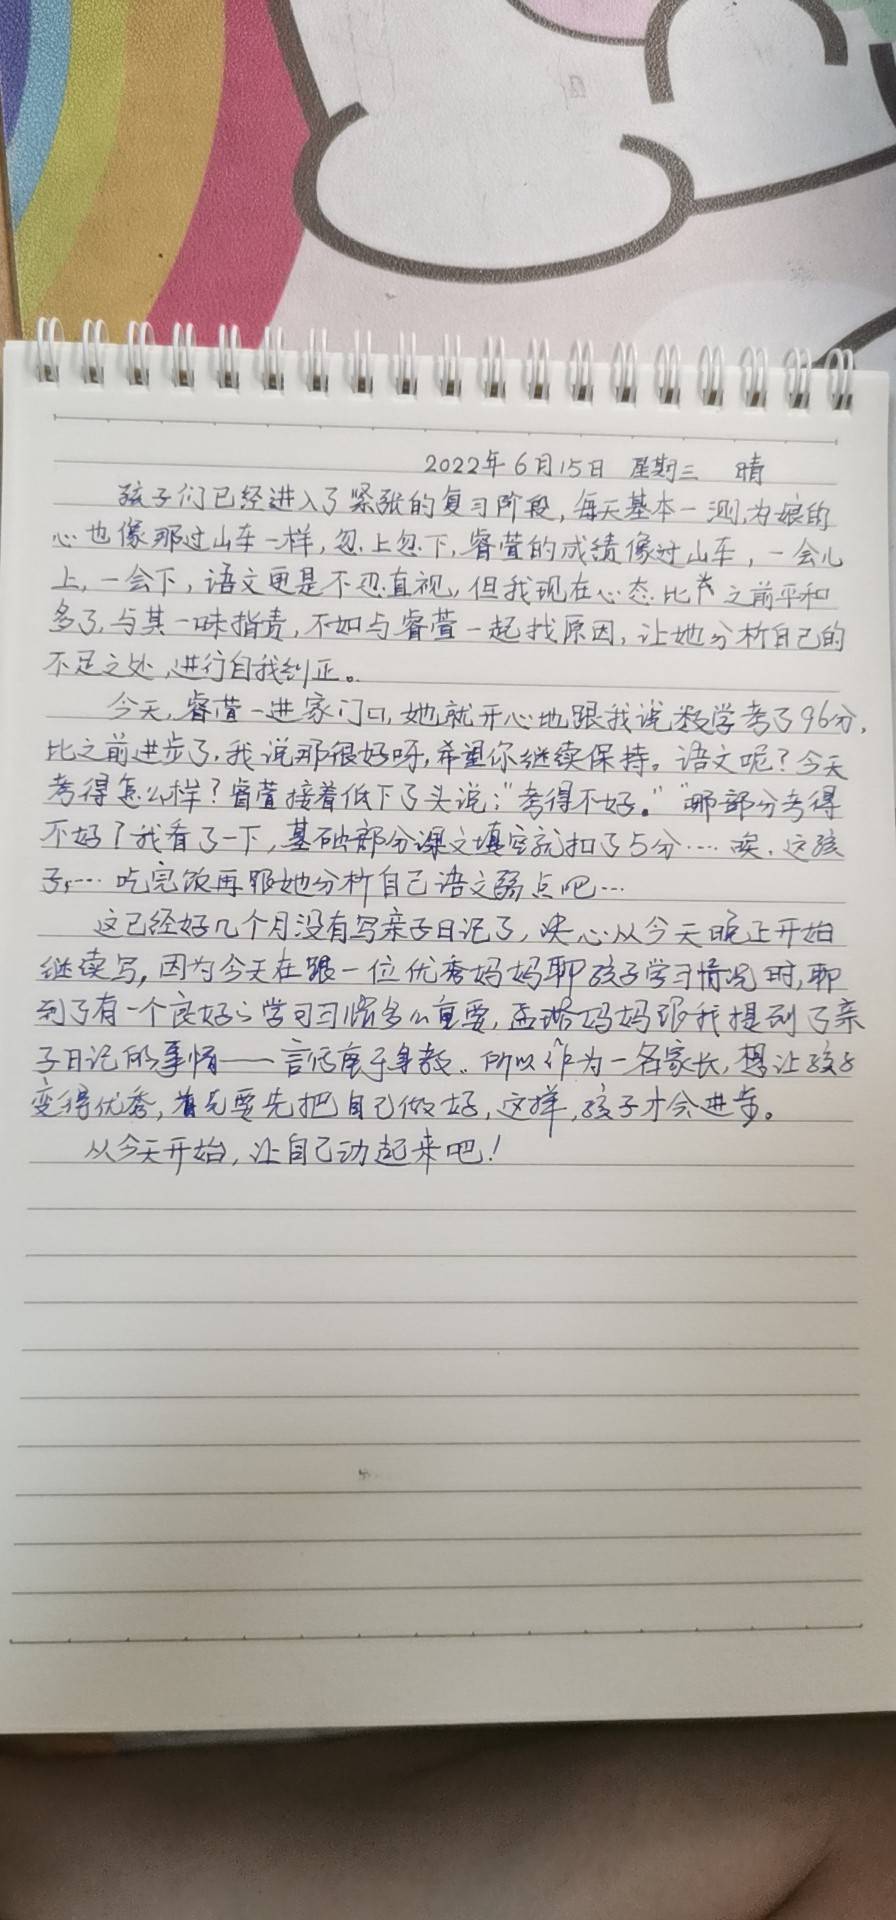 2022年6月15日 星期三 晴
孩子们已经进入了紧张的复习阶段,每天基本一测,为娘的
心也像那过山车一样,忽上忽下,睿萱的成绩像过山车,一会儿
上,一会下,语文更是不忍直视,但我现在心态比 之前平和
多了,与其一味指责,不如与睿萱一起找原因,让她分析自己的
不足之处,进行自我纠正。
今天,睿萱一进家门口,她就开心地跟我说数学考了96分,
比之前进步了,我说那很好呀,希望你继续保持。语文呢?今天
考得怎么样?睿萱接着低下了头说:"考得不好。""哪部分考得
不好?我看了一下,基础部分课文填空就扣了5分……唉,这孩
子,……吃完饭再跟她分析自己语文弱点吧…
这已经好几个月没有写亲子日记了,决心从今天晚上开始
继续写,因为今天在跟一位优秀妈妈聊孩子学习情况时,聊
到了有一个良好的学习习惯多么重要,孟 妈妈跟我提到了亲
子日记的事情——言传身于身教。所以作为一名家长,想让孩子
变得优秀,首先要先把自己做好,这样,孩子才会进步。
从今天开始,让自己动起来吧!